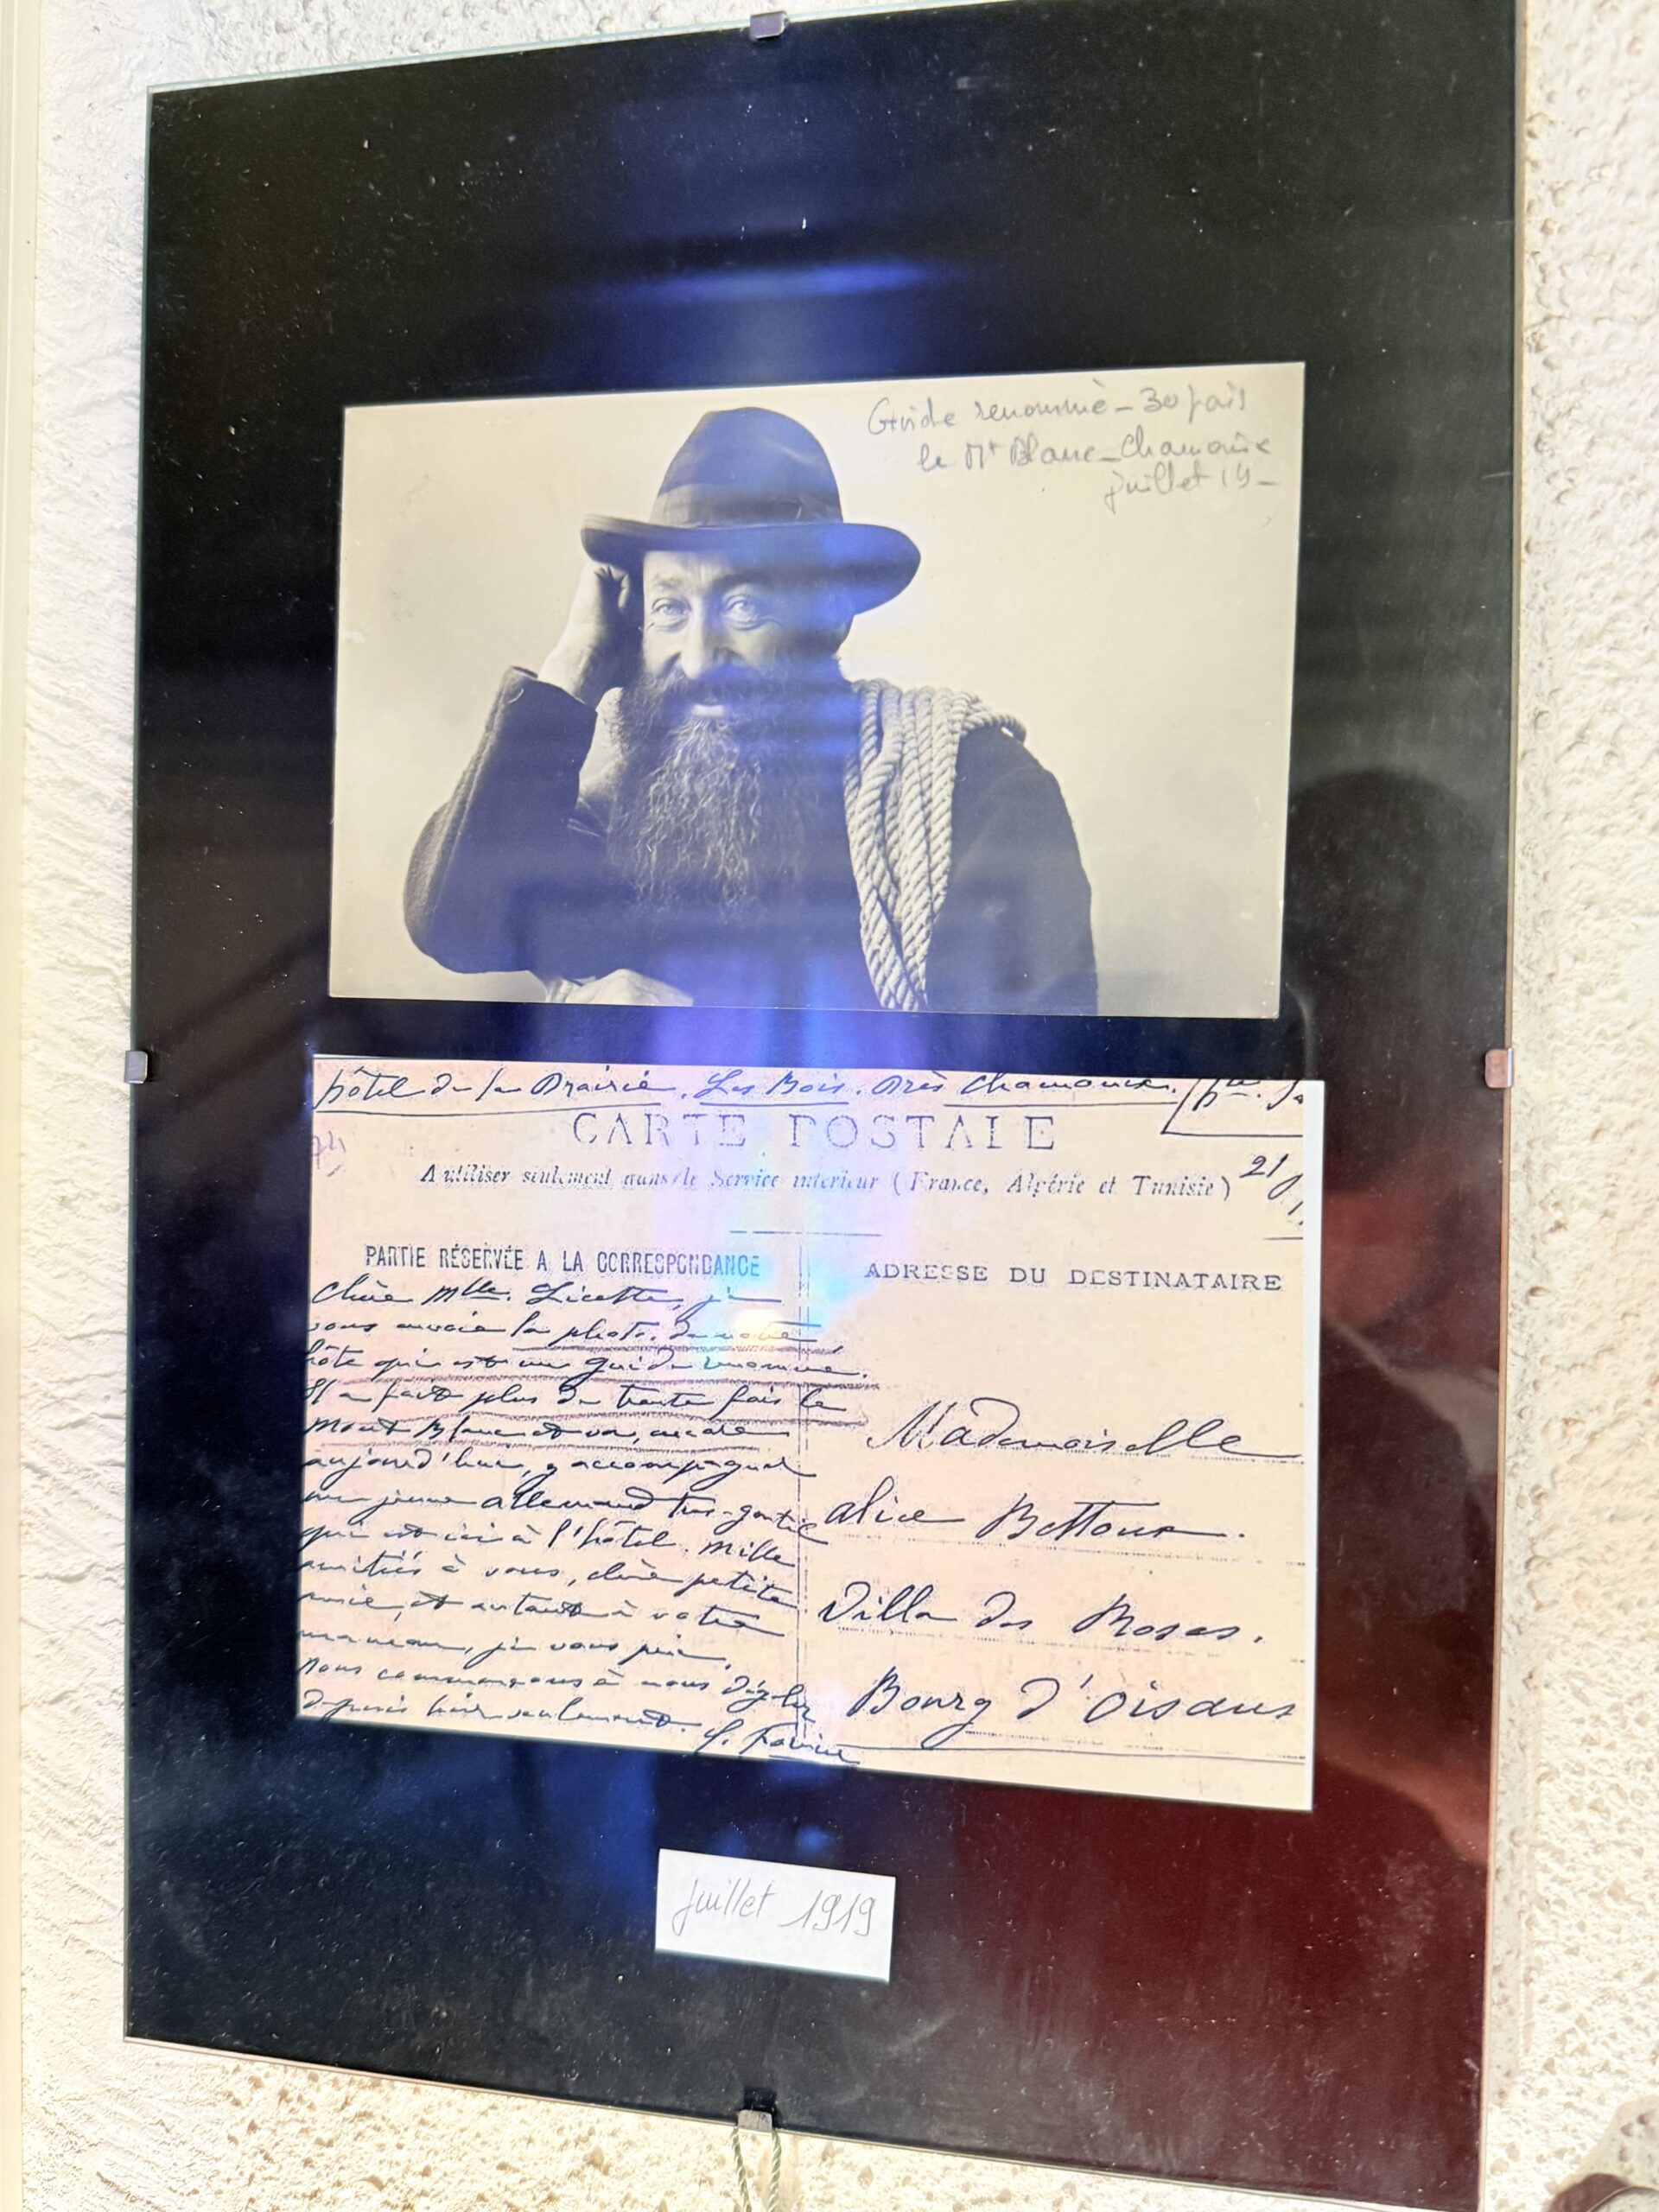 Guide renommé - 30 fois
le Mt Blanc - Chamonix
juillet 19 -
Hôtel de la Prairie. Les Bois. Près Chamonix.
CARTE POSTALE
A utiliser seulement dans le Service intérieur (France, Algérie et Tunisie)
21
PARTIE RÉSERVÉE A LA CORRESPONDANCE
ADRESSE DU DESTINATAIRE
Chère Mlle. Licette, je
vous envoie la photo. de notre
hôte qui est un guide renommé.
Il a fait plus de trente fois le
Mont Blanc et va, encore
aujourd'hui, y accompagner
un jeune allemand très-gentil
qui est ici à l'hôtel. Mille
amitiés à vous, chère petite
amie, et autant à votre
maman, je vous prie.
Nous commençons à nous dégeler
depuis hier seulement.
Mademoiselle
Alice Bettoux.
Villa des Roses.
Bourg d'Oisans
juillet 1919